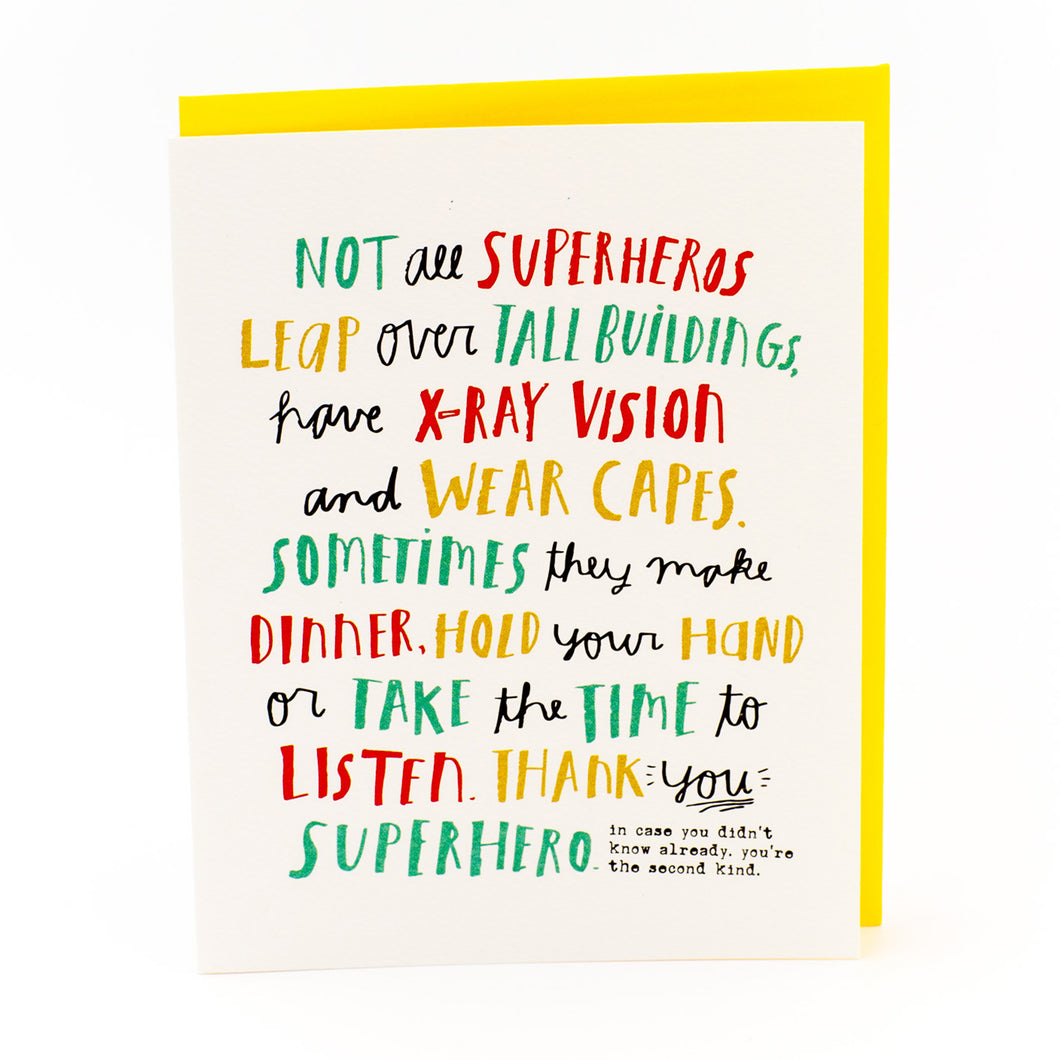 NOT all SUPERHEROS
LEAP over TALL BUILDINGS,
have X-RAY VISION
and WEAR CAPES.
SOMETIMES they make
DINNER, HOLD your HAND
or TAKE the TIME to
LISTEN. THANK you
SUPERHERO.
in case you didn't
know already. you're
the second kind.